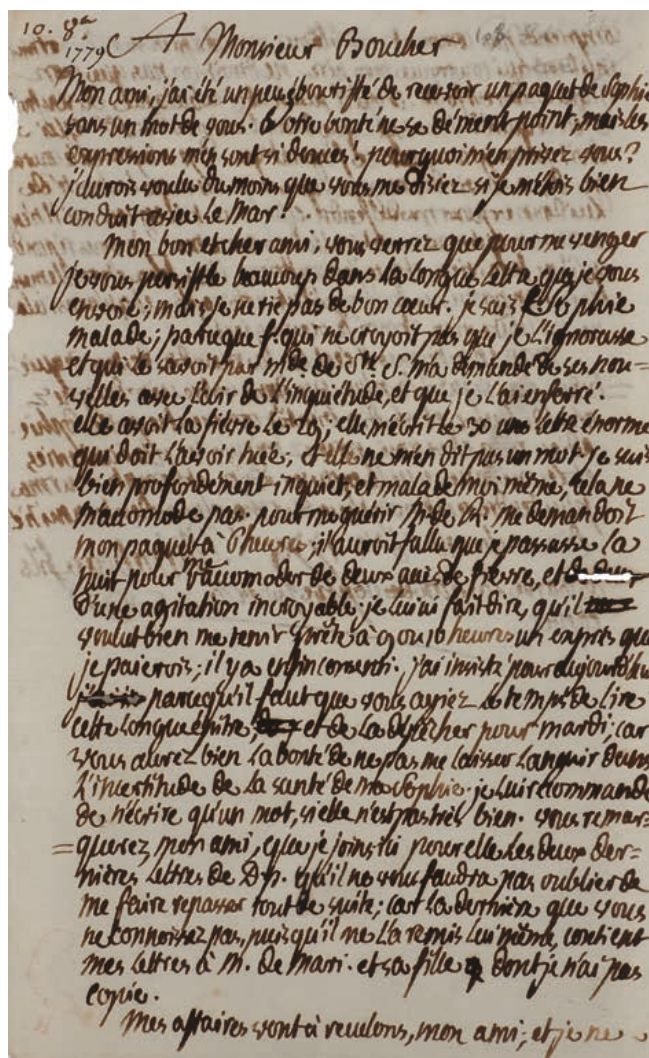 10. 8bre
1779 A Monsieur Boucher
Mon ami, j'ai été un peu ébouriffé de recevoir un paquet de Sophie
sans un mot de vous. Votre bonté ne se dément point, mais les
expressions m'en sont si douces! pourquoi m'en privez vous?
j'aurois voulu du moins que vous me disiez si je m'étois bien
conduit avec le Mar!
Mon bon et cher ami, vous verrez que pour me venger
je vous persiffle beaucoup dans la longue lettre que je vous
envoie; mais je ne rie pas de bon coeur. je sais Sophie
malade; parceque f. qui ne croyoit pas que je l'ignorasse
et qui le savoit par Mde. de Sth. S. m'a demandé de ses nou=
velles avec l'air de l'inquiétude, et que je l'ai enferré.
elle avoit la fièvre le 29; elle m'écrit le 30 une lettre énorme
qui doit l'avoir tuée; et elle ne m'en dit pas un mot. je suis
bien profondément inquiet, et malade moi même, cela ne
m'accomode pas. pour me guérir M. de R. me demandoit
mon paquet à 6 heures; il auroit fallu que je passasse la
nuit pour m'accomoder de deux accès de fievre, et
d'une agitation incroyable. je lui ai fait dire, qu'il
voulut bien me tenir prêt à 9 ou 10 heures un exprès que
je paierois; il y a enfin consenti. j'ai insisté pour aujourd'hui
parcequ'il faut que vous ayiez le temps de lire
cette longue épitre, et de la dépêcher pour mardi; car
vous aurez bien la bonté de ne pas me laisser languir dans
l'incertitude de la santé de ma Sophie. je lui recommande
de n'écrire qu'un mot, si elle n'est pas très bien. vous remar=
=querez mon ami, que je joins ici pour elle les deux der=
nières lettres de Dp. qu'il ne vous faudra pas oublier de
me faire repasser tout de suite; car la dernière que vous
ne connoissez pas, puisqu'il ne l'a remis lui même, contient
mes lettres à M. de Mari. et sa fille dont je n'ai pas
copie.
Mes affaires vont à reculons, mon ami; et je ne